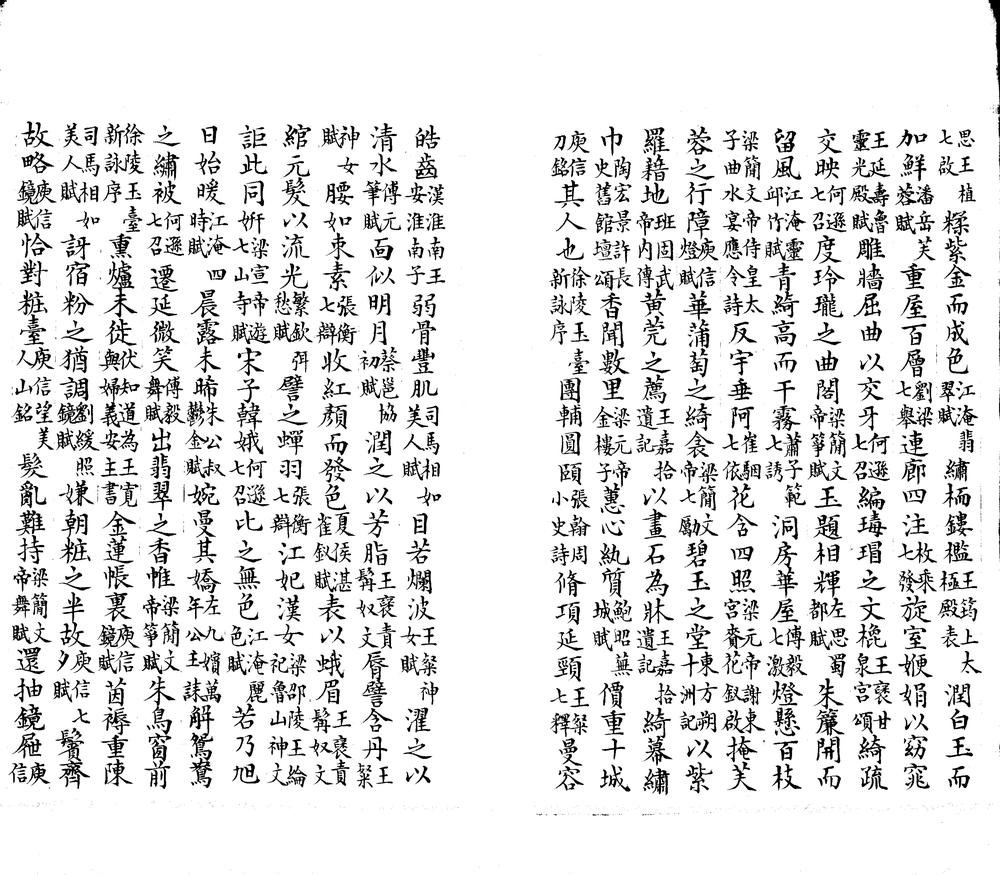 思王植七啟糅紫金而成色江淹翡翠賦繡栭鏤檻王筠上太極殿表潤白玉而
加鮮潘岳芙蓉賦重屋百層劉梁七舉連廊四注枚乘七發旋室㛹娟以窈窕
王延壽魯靈光殿賦雕牆屈曲以交牙何遜七召編瑇瑁之文㮰王裦甘泉宮頌綺疏
交映何遜七召度玲瓏之曲閣梁簡文帝箏賦玉題相輝左思蜀都賦朱簾開而
留風江淹靈邱竹賦青綺高而干霧蕭子範七誘洞房華屋傅毅七激燈懸百枝
梁簡文帝侍皇太子曲水宴應令詩反宇垂阿崔駰七依花含四照梁元帝謝東宮賚花釵啟掩芙
蓉之行障庾信燈賦華蒲萄之綺衾梁簡文帝七勵碧玉之堂東方朔十洲記以紫
羅籍地班固武帝內傳黃莞之薦王嘉拾遺記以畫石為牀王嘉拾遺記綺幕繡
巾陶宏景許長史舊館壇頌香聞數里梁元帝金樓子蕙心紈質鮑昭蕪城賦價重十城
庾信刀銘其人也徐陵玉臺新詠序團輔圓頤張翰周小史詩脩項延頸王粲七釋曼容
皓齒漢淮南王安淮南子弱骨豐肌司馬相如美人賦目若爛波王粲神女賦濯之以
清水傅元筆賦面似明月蔡邕協初賦潤之以芳脂王裦責髯奴文脣譬含丹王粲
神女賦腰如束素張衡七辯收紅顏而發色夏侯湛雀釵賦表以蛾眉王裦責髯奴文
綰元髮以流光繁欽弭愁賦譬之蟬羽張衡七辯江妃漢女梁邵陵王綸祀魯山神文
詎此同妍梁宣帝遊七山寺賦宋子韓娥何遜七召比之無色江淹麗色賦若乃旭
日始暖江淹四時賦晨露未晞朱公叔鬱金賦婉曼其嬌左九嬪萬年公主誄解鴛鴦
之繡被何遜七召遷延微笑傅毅舞賦出翡翠之香帷梁簡文帝箏賦朱鳥窗前
徐陵玉臺新詠序熏爐未徙伏知道為王寬與婦義安主書金蓮帳裏庾信鏡賦茵褥重陳
司馬相如美人賦訝宿粉之猶調劉緩照鏡賦嫌朝粧之半故庾信七夕賦鬢齊
故略庾信鏡賦恰對粧臺庾信望美人山銘髮亂難持梁簡文帝舞賦還抽鏡屜庾信